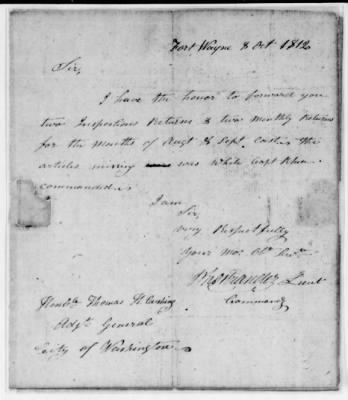 Fort Wayne 8 Oct 1812
Sir,
I have the honor to forward you
two Inspections Returns & two Monthly Returns
for the months of Augt & Sept. The
articles missing was while Capt Rhea
commanded
I am
Sir,
very Respectfully
Your Mo. Obt. Servt.
Lieut
Commandg
Honble Thomas H. Cushing
Adjt General
City of Washington